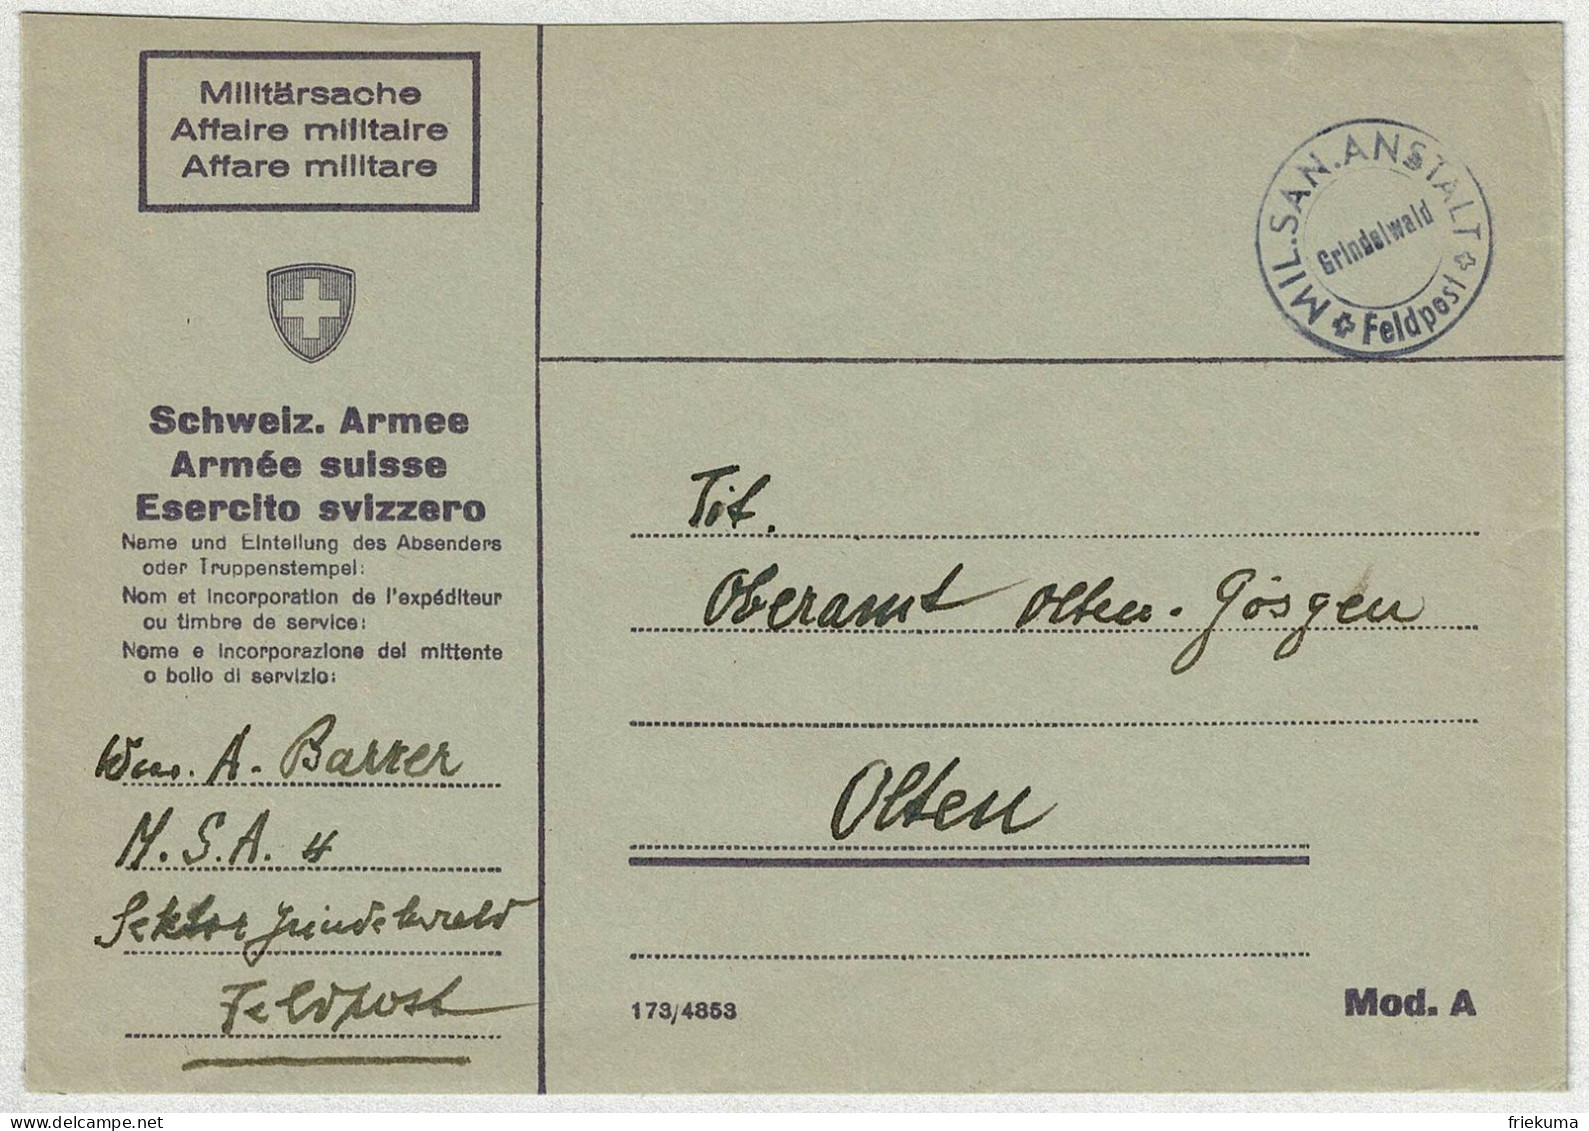 Militärsache
Affaire militaire
Affare militare
Schweiz. Armee
Armée suisse
Esercito svizzero
Name und Einteilung des Absenders
oder Truppenstempel:
Nom et incorporation de l'expéditeur
ou timbre de service:
Nome e incorporazione del mittente
o bollo di servizio:
A. Barrer
M.S.A. 4
Sektor Grindelwald
Feldpost
MIL.SAN.ANSTALT
Grindelwald
Feldpost
Tit.
Oberamt Olten-Gösgen
Olten
173/4853
Mod. A
friekuma